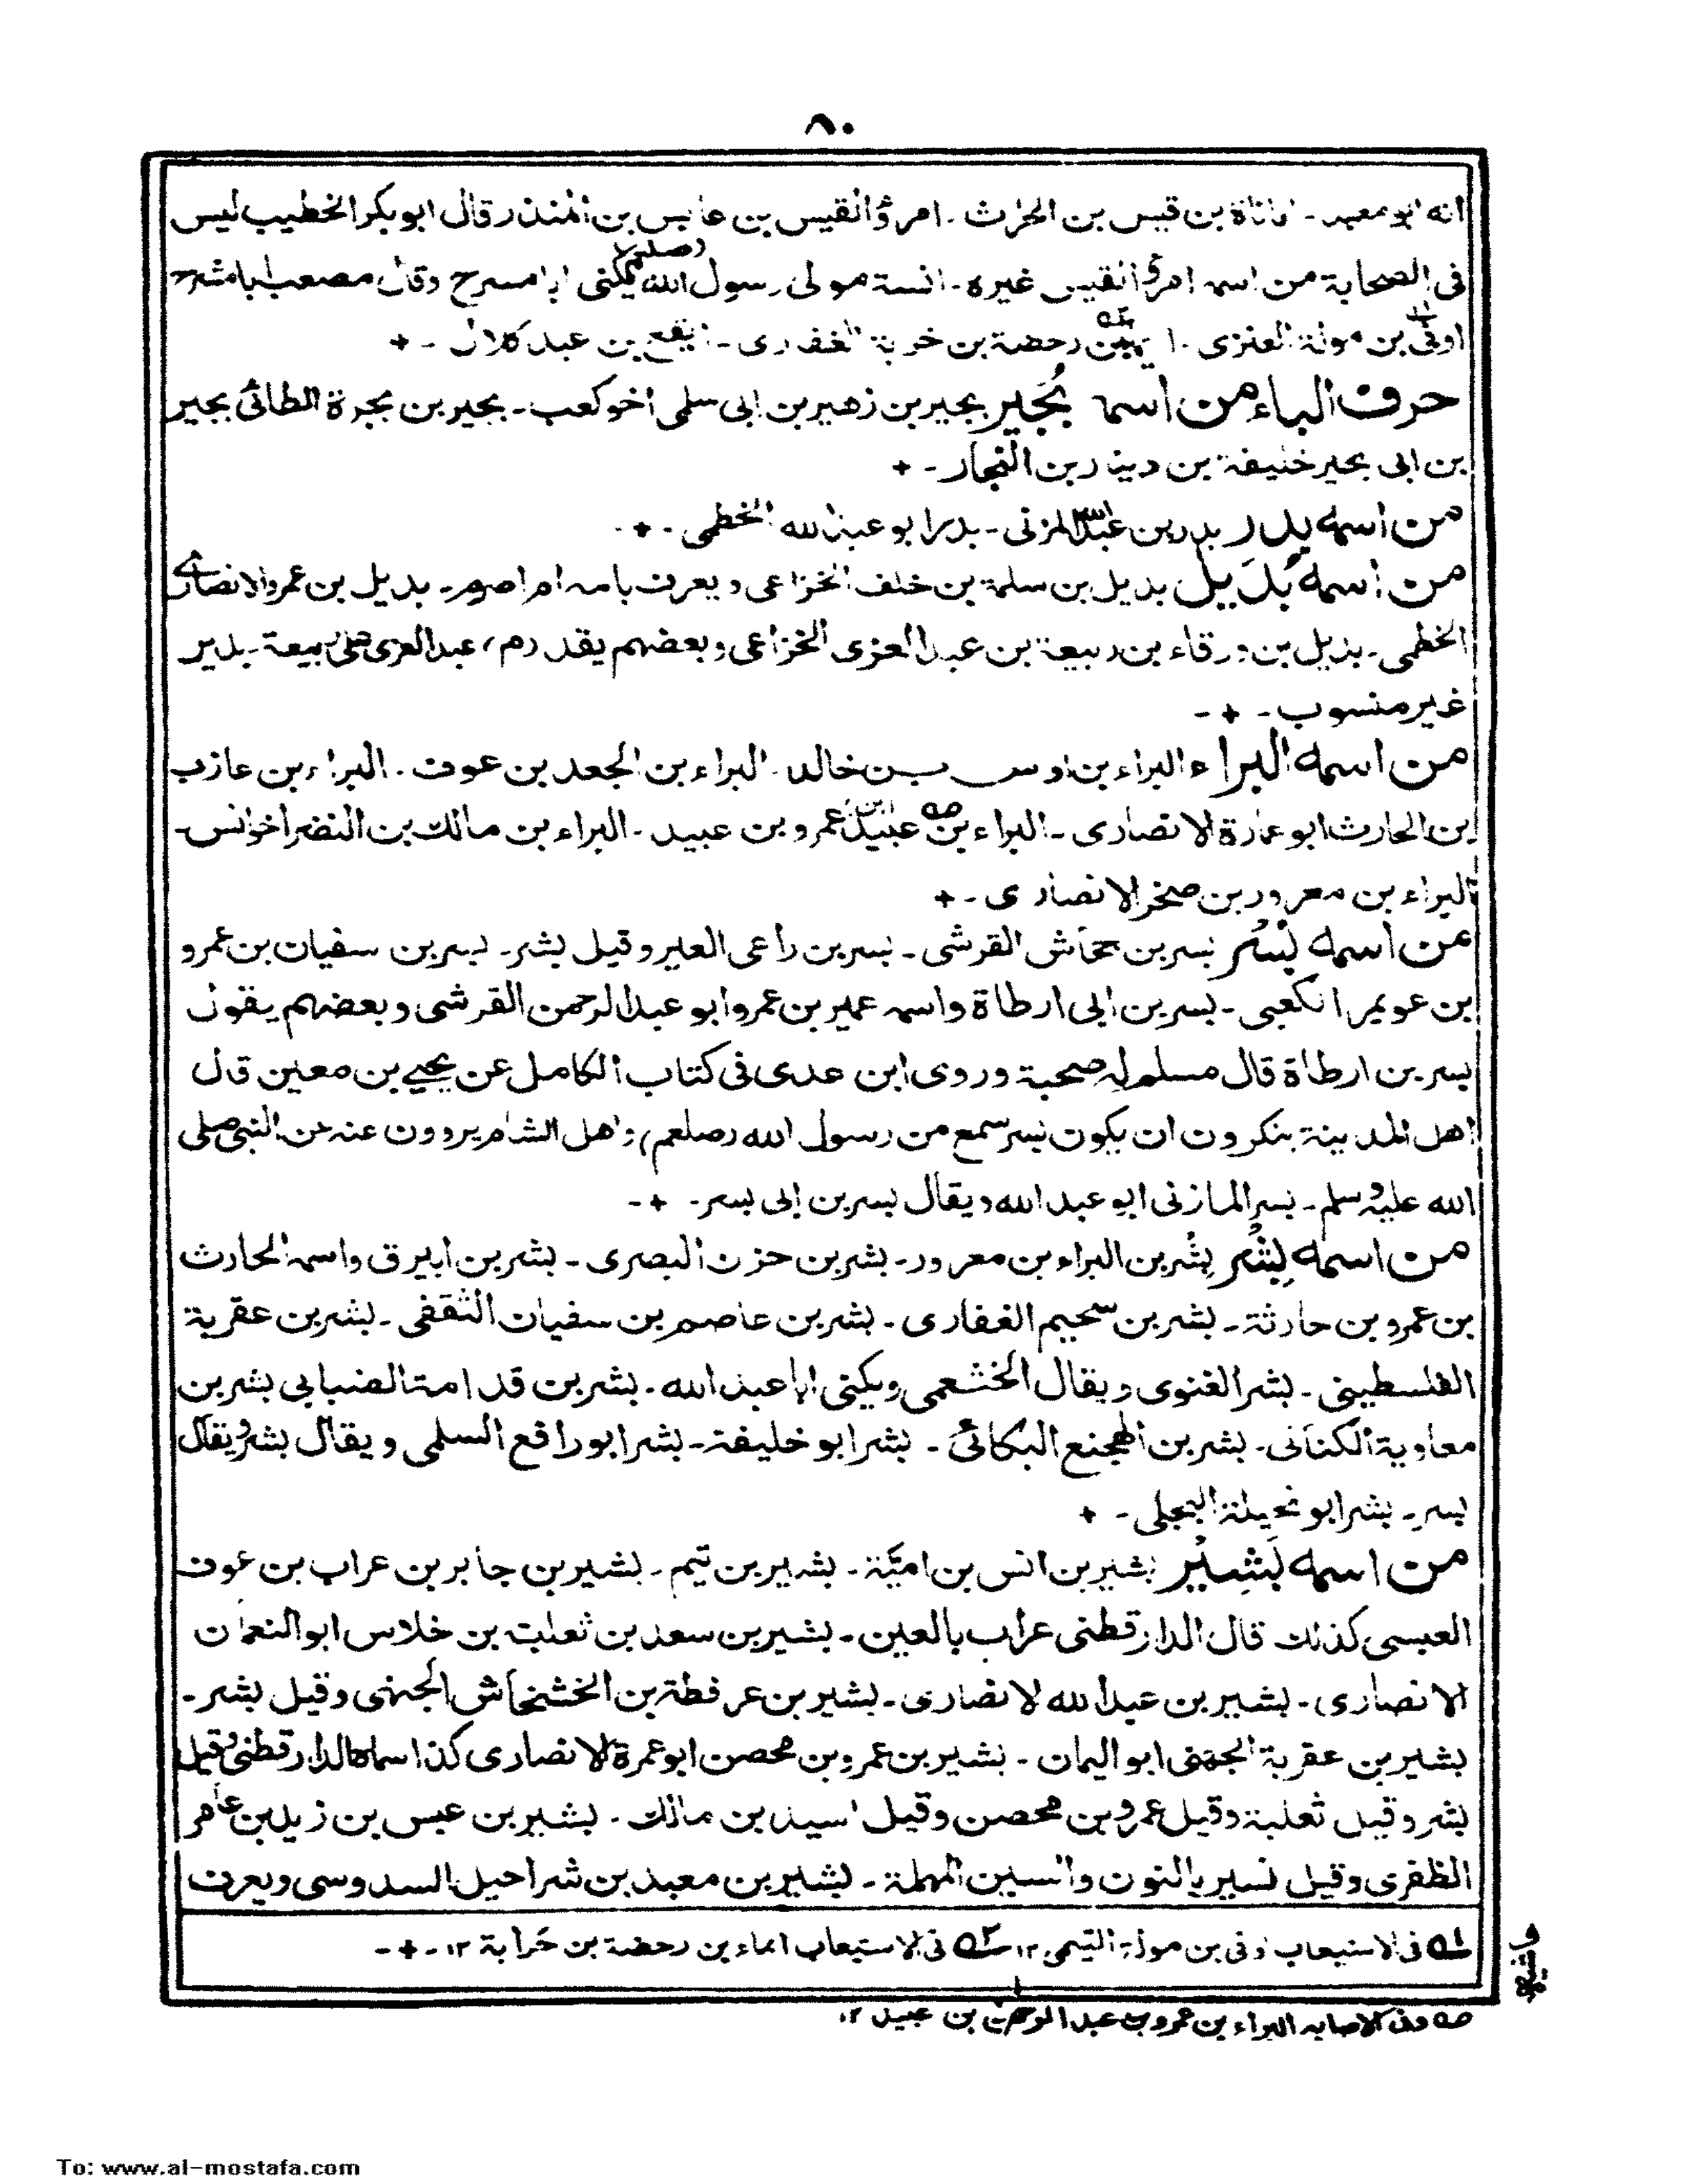 ٨٠
انه ابو معبد - اماناة بن قيس بن الحرث - امرؤ القيس بن عابس بن المنذر قال ابو بكر الخطيب ليس
فى الصحابة من اسمه امرؤ القيس غيره - انسة مولى رسول الله (صلعم) يكنى ابا مسرح وقال مصعب ابا مشرح
اوفى بن مولة العنزى - رحضة بن خربة الغفارى - ايقع بن عبد كلال - +
حرف الباء من اسمه بُجَير بجير بن زهير بن ابى سلمى اخو كعب - بجير بن بجرة الطائى بجير
بن ابى بجير خليفة بن دينار بن النجار - +
من اسمه بدر بدر بن عبد الله المزنى - بدر ابو عبد الله الخطمى - + -
من اسمه بُدَيل بديل بن سلمة بن خلف الخزاعى ويعرف بامه ام اصرم - بديل بن عمرو الانصارى
الخطمى - بديل بن ورقاء بن ربيعة بن عبد العزى الخزاعى وبعضهم يقدم (م) عبد العزى على ربيعة - بدير
غير منسوب - + -
من اسمه البراء البراء بن اوس بن خالد - البراء بن الجعد بن عوف - البراء بن عازب
بن الحارث ابو عمارة الانصارى - البراء بن عبيد بن عمرو بن عبيد - البراء بن مالك بن النضر اخو انس -
البراء بن معرور بن صخر الانصارى - +
من اسمه بُسْر بسر بن جحاش القرشى - بسر بن راعى العير وقيل بشر - بسر بن سفيان بن عمرو
بن عويمر الكعبى - بسر بن ابى ارطاة واسمه عمير بن عمرو ابو عبد الرحمن القرشى وبعضهم يقول
بسر بن ارطاة قال مسلم له صحبة وروى ابن عدى فى كتاب الكامل عن يحيى بن معين قال
اهل المدينة ينكرون ان يكون بسر سمع من رسول الله (صلعم) واهل الشام يروون عنه عن النبى صلى
الله عليه وسلم - بسر المازنى ابو عبد الله ويقال بسر بن ابى بسر - + -
من اسمه بِشْر بِشْر بن البراء بن معرور - بشر بن حزن البصرى - بشر بن ابيرق واسمه الحارث
بن عمرو بن حارثة - بشر بن سحيم الغفارى - بشر بن عاصم بن سفيان الثقفى - بشر بن عقربة
الفلسطينى - بشر الغنوى ويقال الخثعمى ويكنى ابا عبد الله - بشر بن قدامة الضبابى بشر بن
معاوية الكنانى - بشر بن الهجنع البكائى - بشر ابو خليفة - بشر ابو رافع السلمى ويقال بشر ويقال
بسر - بشر ابو نحيلة البجلى - +
من اسمه بَشِيْر بشير بن انس بن اميّة - بشير بن تيم - بشير بن جابر بن عراب بن عوف
العبسى كذلك قال الدارقطنى عراب بالعين - بشير بن سعد بن ثعلبة بن خلاس ابو النعمان
الانصارى - بشير بن عبد الله الانصارى - بشير بن عرفطة بن الخشخاش الجهنى وقيل بشر -
بشير بن عقربة الجهنى ابو اليمان - بشير بن عمرو بن محصن ابو عمرة الانصارى كذا سماه الدارقطنى وقيل
بشر وقيل ثعلبة وقيل عمرو بن محصن وقيل اسيد بن مالك - بشير بن عبس بن زيد بن عامر
الظفرى وقيل نسير بالنون والسين المهملة - بشير بن معبد بن شراحيل السدوسى ويعرف
حاشيه
١ه فى الاستيعاب اوفى بن مولة التيمى ١٢ ٢ه فى الاستيعاب ايماء بن رحضة بن خرابة ١٢ - + -
صه وفى الاصابه البراء بن عمرو بن عبد الرحمن بن عبيد ١٢
To: www.al-mostafa.com